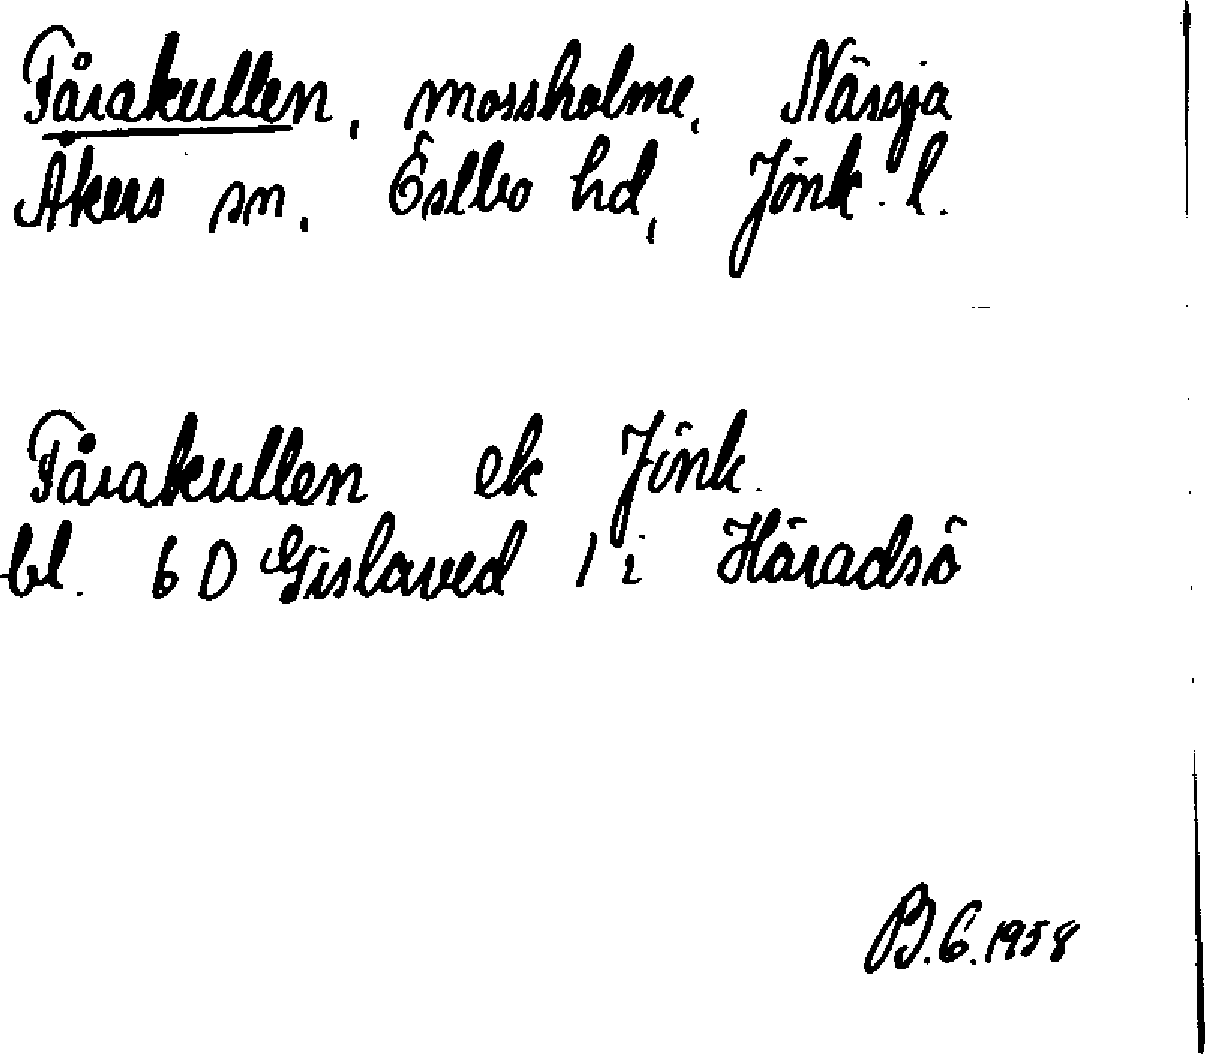 Fårakullen, mossholme, Näsgja
Åkers sn. Östbo hd, Jönk. l.
Fårakullen ek Jönk.
bl. 6 D Gislaved 1 i Häradsö
B.G. 1958